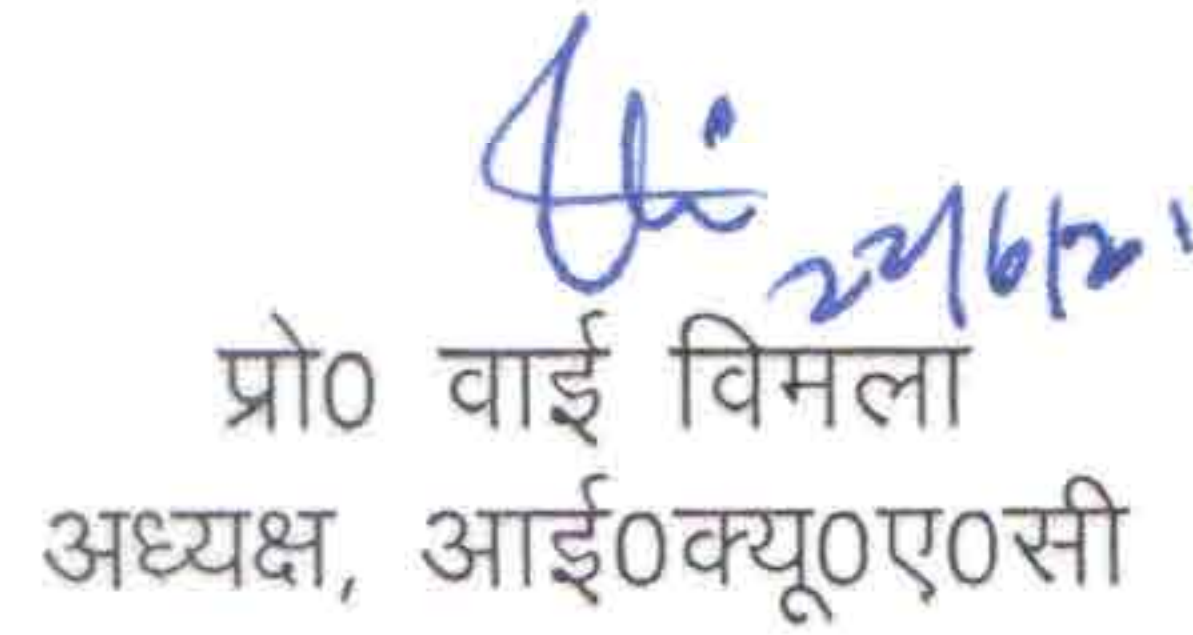 22/6/21
प्रो0 वाई विमला
अध्यक्ष, आई0क्यू0ए0सी